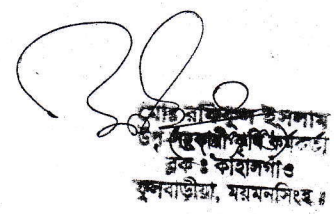 মোঃ রফিকুল ইসলাম
উপ সহকারী কৃষি কর্মকর্তা
ব্লক : কাহালগাঁও
ফুলবাড়ীয়া, ময়মনসিংহ।